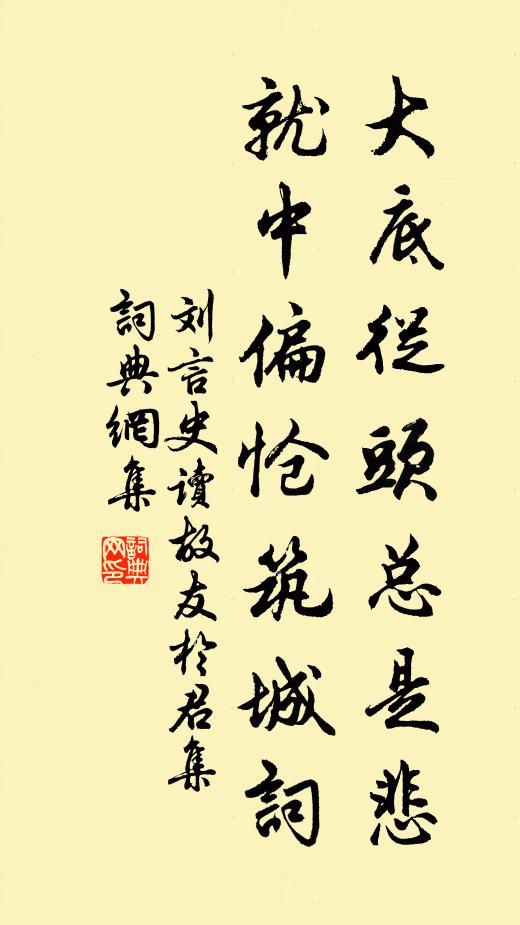 大底從頭总是悲
就中偏怆筑城詞
刘言史讀故友於君集
詞典網集
詞典
网印